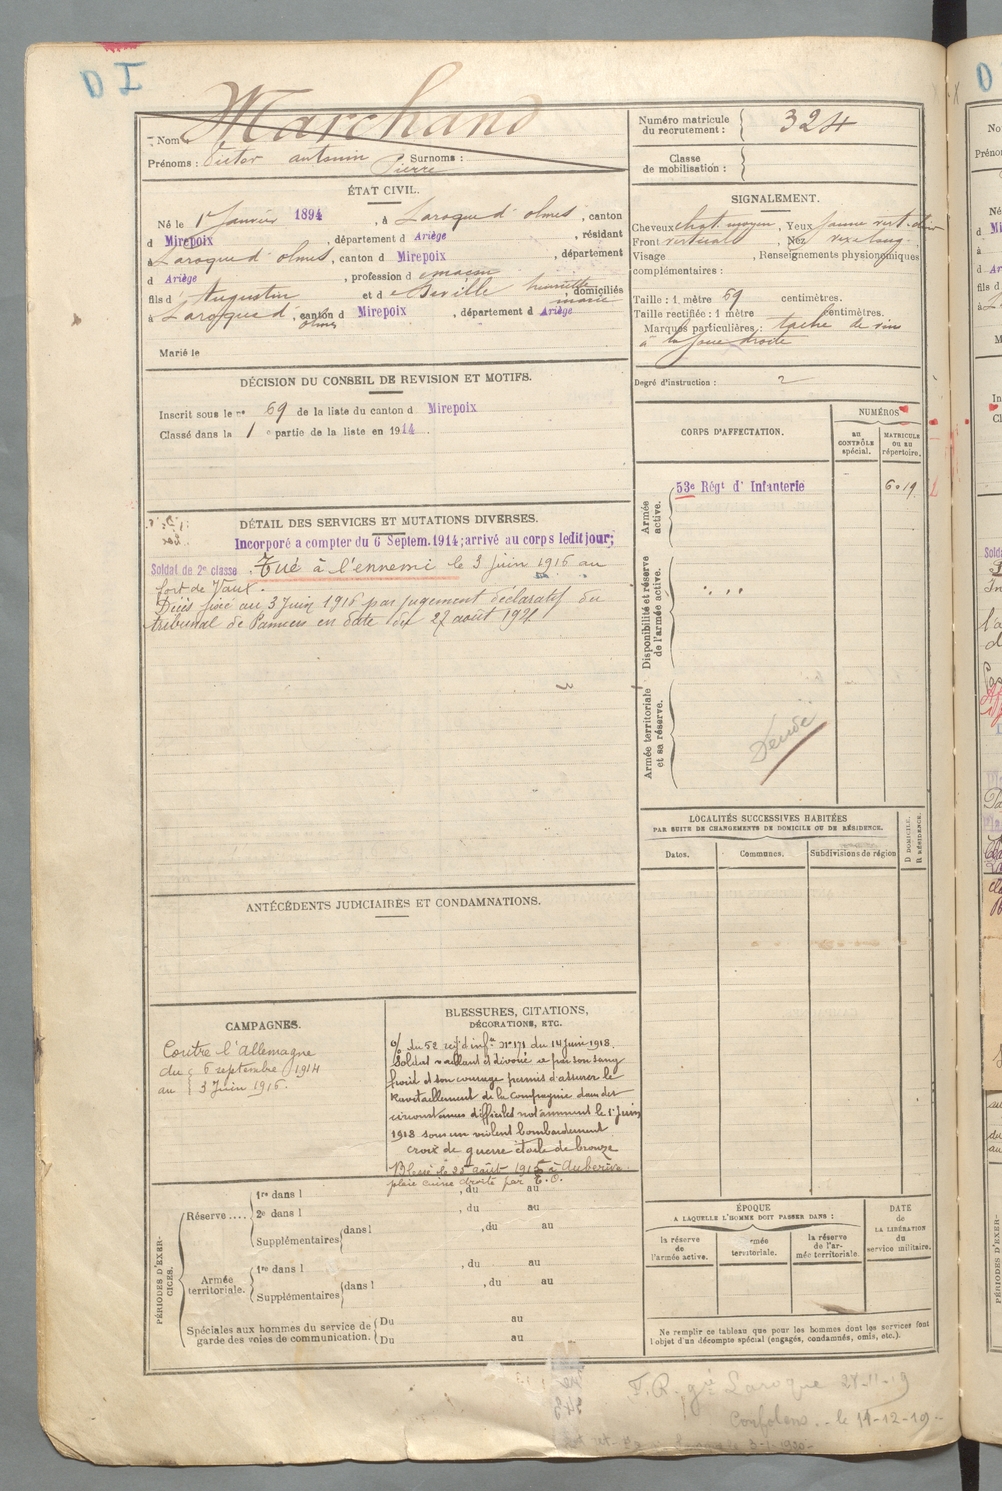 D I
Marchand
Nom :
Prénoms : Victor antonin Pierre Surnoms :
Numéro matricule du recrutement : 324
Classe de mobilisation :
ÉTAT CIVIL.
Né le 1er Janvier 1894, à Laroque d'olmes, canton
d Mirepoix, département d Ariège, résidant
à Laroque d'olmes, canton d Mirepoix, département
d Ariège, profession d maçon
fils d' Augustin et de Deville henriette marie, domiciliés
à Laroque d olmes, canton d Mirepoix, département d Ariège
Marié le
SIGNALEMENT.
Cheveux chat. moyen, Yeux jaune vert
Front vertical, Nez
Visage , Renseignements physionomiques
complémentaires :
Taille : 1 mètre 69 centimètres.
Taille rectifiée : 1 mètre centimètres.
Marques particulières : tache de vin
à la joue droite
Degré d'instruction : 2
DÉCISION DU CONSEIL DE REVISION ET MOTIFS.
Inscrit sous le no 69 de la liste du canton d Mirepoix
Classé dans la 1 e partie de la liste en 1914.
CORPS D'AFFECTATION.
NUMÉROS
au CONTRÔLE spécial.
MATRICULE ou au répertoire.
Armée active.
53e Régt d' Infanterie 6019
Disponibilité et réserve de l'armée active.
Armée territoriale et sa réserve.
DÉTAIL DES SERVICES ET MUTATIONS DIVERSES.
Incorporé a compter du 6 Septem. 1914; arrivé au corps ledit jour;
Soldat de 2e classe. Tué à l'ennemi le 3 Juin 1916 au
fort de Vaux.
Décès fixé au 3 Juin 1916 par jugement déclaratif du
tribunal de Pamiers en date du 27 août 1921
LOCALITÉS SUCCESSIVES HABITÉES
PAR SUITE DE CHANGEMENTS DE DOMICILE OU DE RÉSIDENCE.
Dates.
Communes.
Subdivisions de région
D DOMICILE.
R RÉSIDENCE.
ANTÉCÉDENTS JUDICIAIRES ET CONDAMNATIONS.
CAMPAGNES.
Contre l'Allemagne
du 6 septembre 1914
au 3 Juin 1916.
BLESSURES, CITATIONS,
DÉCORATIONS, ETC.
du 52 reg d'infie n° 171 du 14 juin 1918.
Soldat vaillant et dévoué a par son sang
froid et son courage permis d'assurer le
Ravitaillement de la Compagnie dans des
circonstances difficiles notamment le 1er juin
1918 sous un violent bombardement
croix de guerre étoile de bronze
Blessé le 25 août 1915 à Auberive
plaie cuisse droite par E.O.
PÉRIODES D'EXERCICES.
Réserve....
1re dans l , du au
2e dans l , du au
Supplémentaires dans l , du au
Armée territoriale.
1re dans l , du au
Supplémentaires dans l , du au
Spéciales aux hommes du service de garde des voies de communication.
Du au
Du au
ÉPOQUE
A LAQUELLE L'HOMME DOIT PASSER DANS :
la réserve de l'armée active.
armée territoriale.
la réserve de l'armée territoriale.
DATE de LA LIBÉRATION du service militaire.
Ne remplir ce tableau que pour les hommes dont les services font
l'objet d'un décompte spécial (engagés, condamnés, omis, etc.).
F.R. gie Laroque 28-11-19
Confolens.. le 14-12-19-